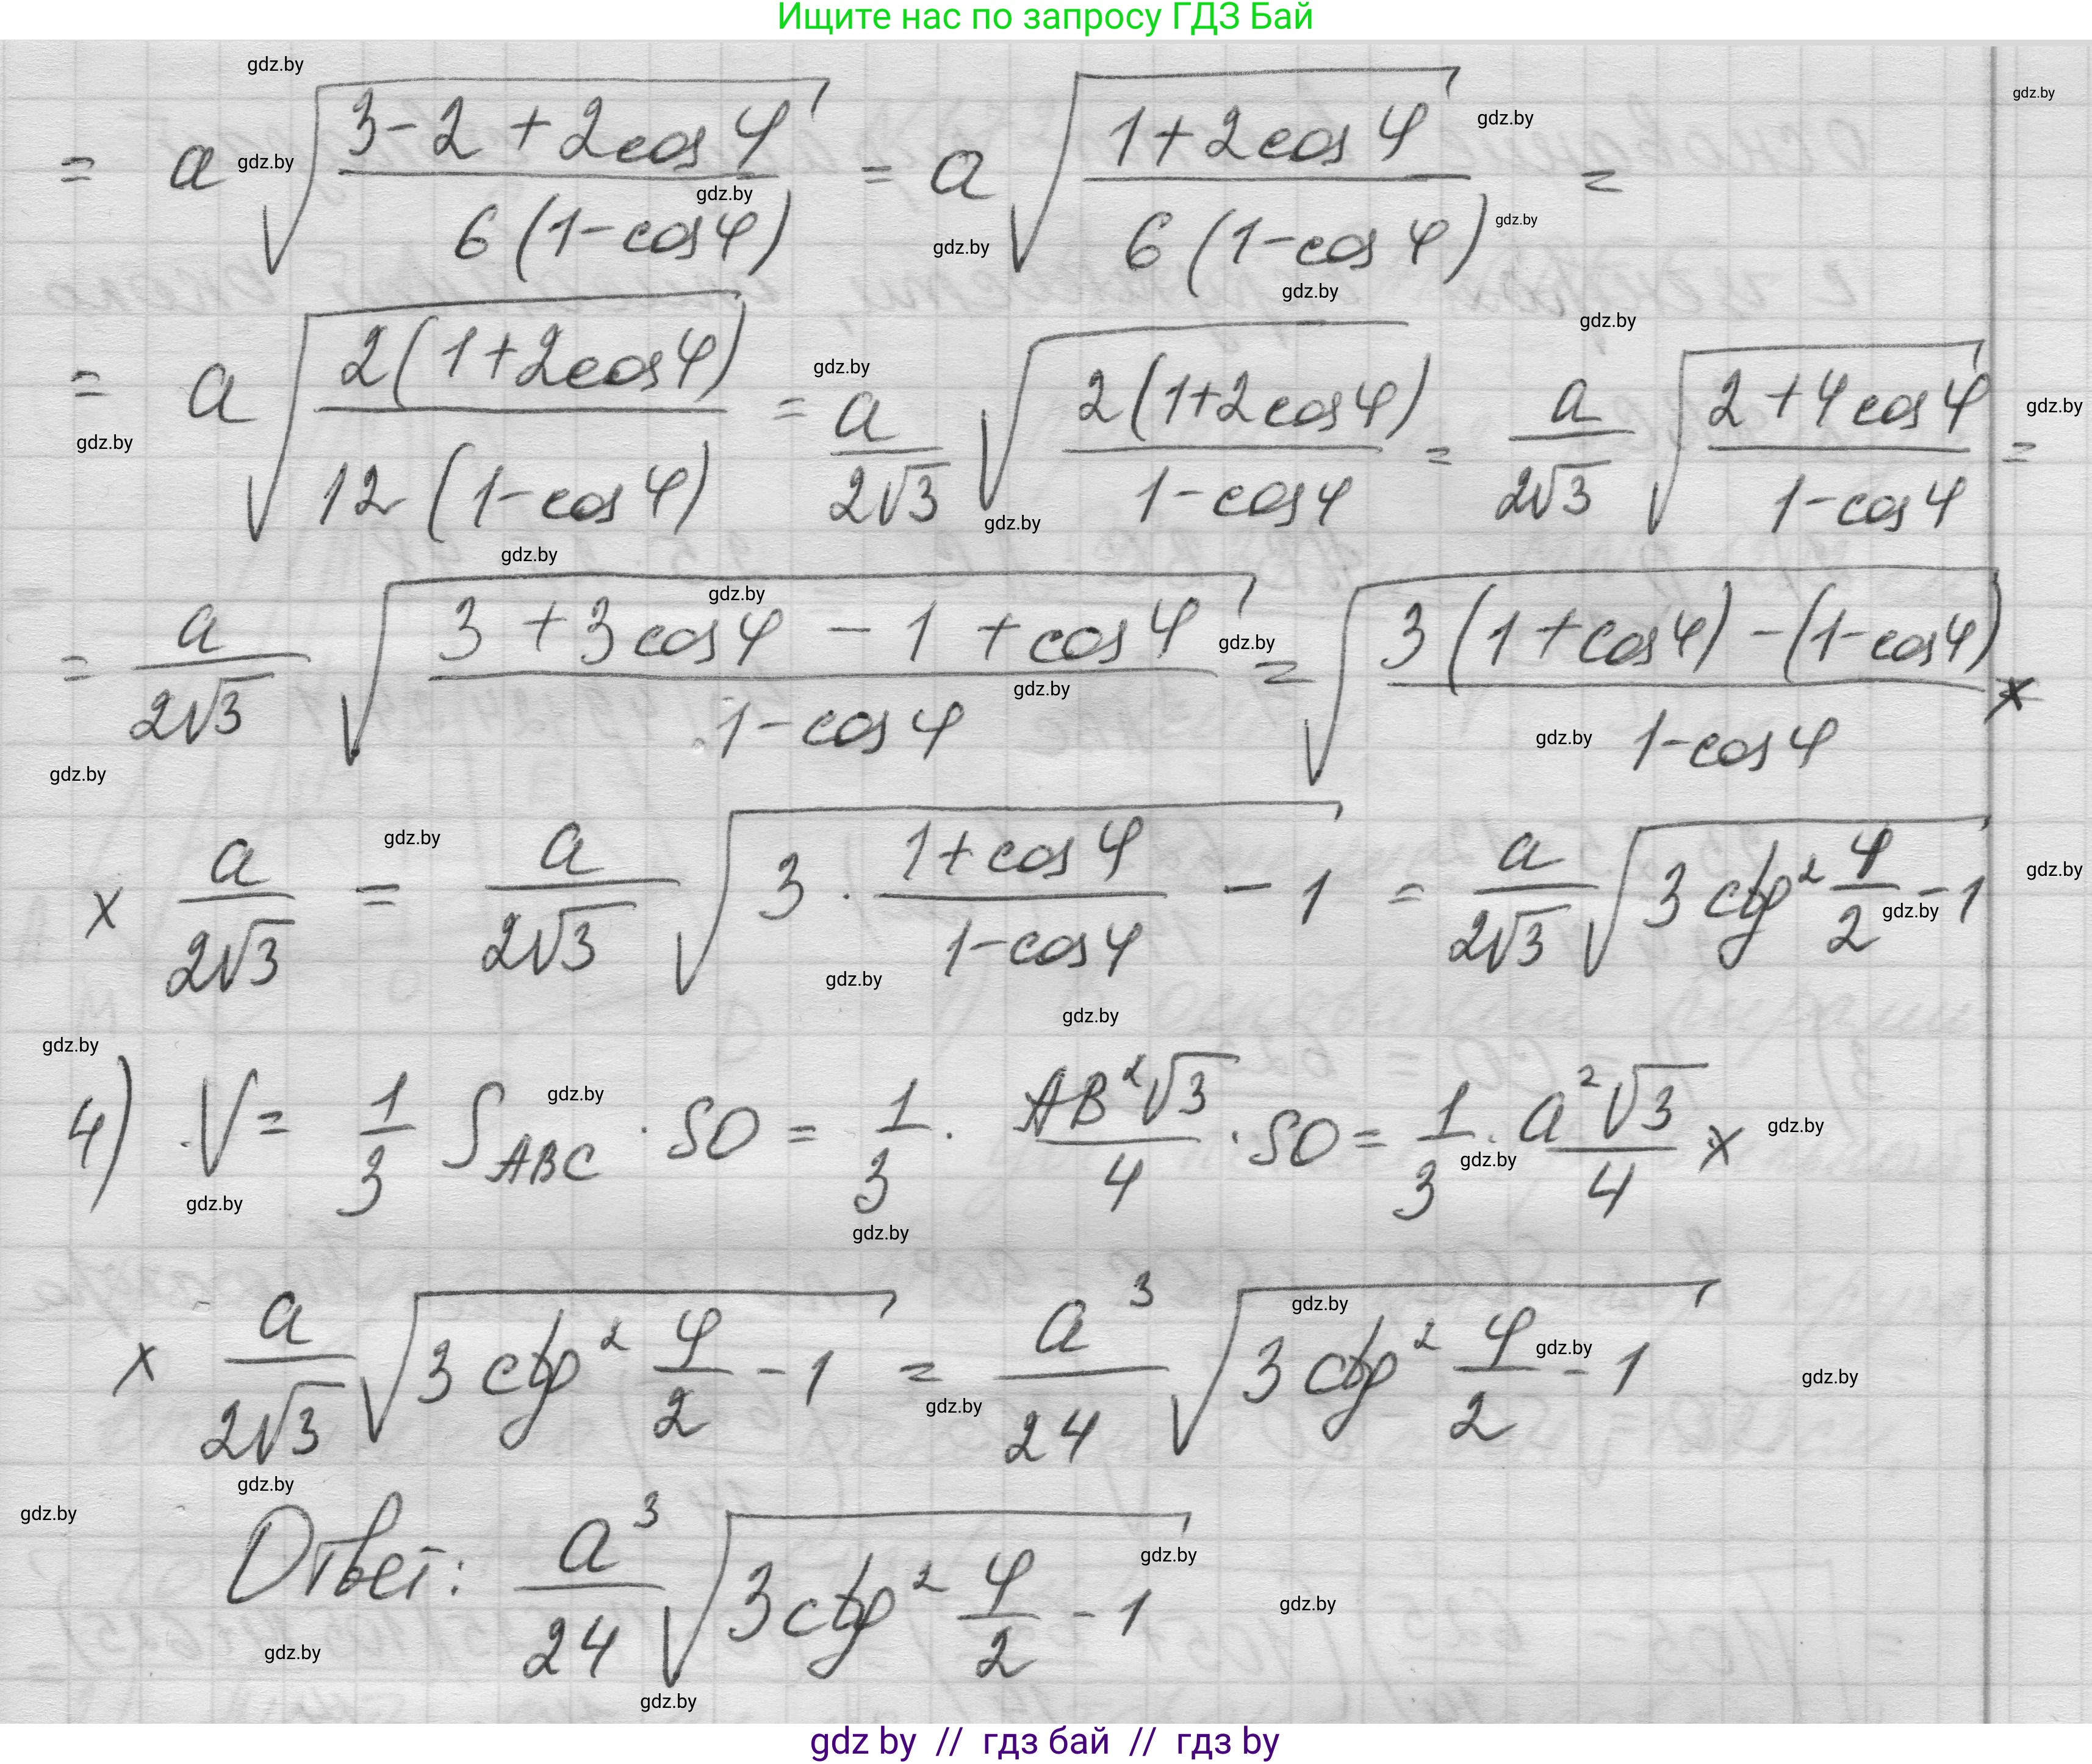 Ищите нас по запросу ГДЗ Бай
= a √((3-2+2cos φ)/(6(1-cos φ))) = a √((1+2cos φ)/(6(1-cos φ))) =
= a √((2(1+2cos φ))/(12(1-cos φ))) = a/(2√3) √((2(1+2cos φ))/(1-cos φ)) = a/(2√3) √((2+4cos φ)/(1-cos φ)) =
= a/(2√3) √((3+3cos φ-1+cos φ)/(1-cos φ)) = √((3(1+cos φ)-(1-cos φ))/(1-cos φ)) ×
× a/(2√3) = a/(2√3) √(3·(1+cos φ)/(1-cos φ) - 1) = a/(2√3) √(3ctg² φ/2 - 1)
4) V = 1/3 S_ABC · SO = 1/3 · (AB²√3)/4 · SO = 1/3 · (a²√3)/4 ×
× a/(2√3) √(3ctg² φ/2 - 1) = a³/24 √(3ctg² φ/2 - 1)
Ответ: a³/24 √(3ctg² φ/2 - 1)
gdz by // гдз бай // гдз by